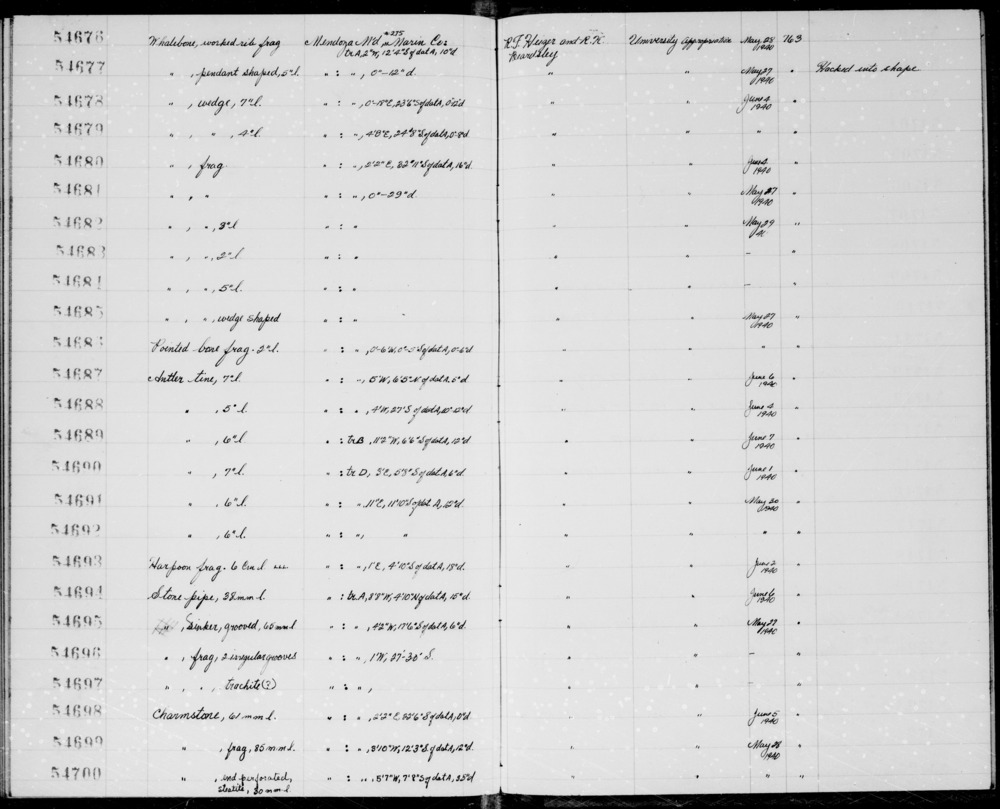 54676 Whalebone, worked rib frag Mendoza Md, #275 Marin Co: R.F. Heizer and R.K. University Appropriation May 28 1940 763
trA, 2"W, 12'4"S of datA, 10"d Beardsley
54677 " , pendant shaped, 5"l. " : " , 0"–12"d. " " May 27 1940 " Hacked into shape
54678 " , wedge, 7"l. " : " , 0'-18"E, 23'6"S of datA, 0'12"d " " June 4 1940 "
54679 " , " , 4"l. " : " , 4'8"E, 24'8"S of datA, 0-8"d " " " "
54680 " , frag. " : " , 2'2"E, 22'11"S of datA, 16"d. " " June 4 1940 "
54681 " , " " : " , 0"–29"d. " " May 27 1940 "
54682 " , " , 3"l " : " " " May 29 40 "
54683 " , " , 2"l " : " " " –
54684 " , " , 5"l. " : " " " –
54685 " , " , wedge shaped " : " " " May 27 1940 "
54686 Pointed bone frag. 2"l. " : " , 0'-6"W, 0"-0"S of datA, 0-6"d " " " "
54687 Antler tine, 7"l. " : " , 5'W, 6'5"N of datA, 5"d " " June 6 1940 "
54688 " , 5"l. " : " , 4'W, 27'S of datA, 10"-12"d " " June 4 1940 "
54689 " , 6"l " : trB , 11'2"W, 6'6"S of datA, 12"d " " June 7 1940 "
54690 " , 7"l. " : tr D, 3'E, 5'8"S of datA, 6"d. " " June 1 1940 "
54691 " , 6"l. " : " , 11'E, 11'10"S of dat A, 12"d. " " May 30 1940 "
54692 " , 6"l. " : " , " " " " "
54693 Harpoon frag. 6 cm l " : " , 1'E, 4'10"S of datA, 18"d. " " June 2 1940 "
54694 Stone pipe, 38 mm l " : trA, 8'8"W, 4'10"N of datA, 15"d. " " June 6 1940 "
54695 " , Sinker, grooved, 65 mm l " : " , 4'2"W, 17'6"S of datA, 6"d. " " May 29 1940 "
54696 " , frag, 2 irregular grooves " : " , 1'W, 27'-30' S. " " – "
54697 " , " , trachite(?) " : " , " " – "
54698 Charmstone, 61 mm l. " : " , 2'2"E, 22'6"S of datA, 0"d " " June 5 1940 "
54699 " , frag, 35 mm l. " : " , 3'10"W, 12'3"S of datA, 12"d. " " May 28 1940 "
54700 " , end perforated, " : " , 5'7"W, 7'8"S of datA, 35"d " " " "
steatite, 30 mm l